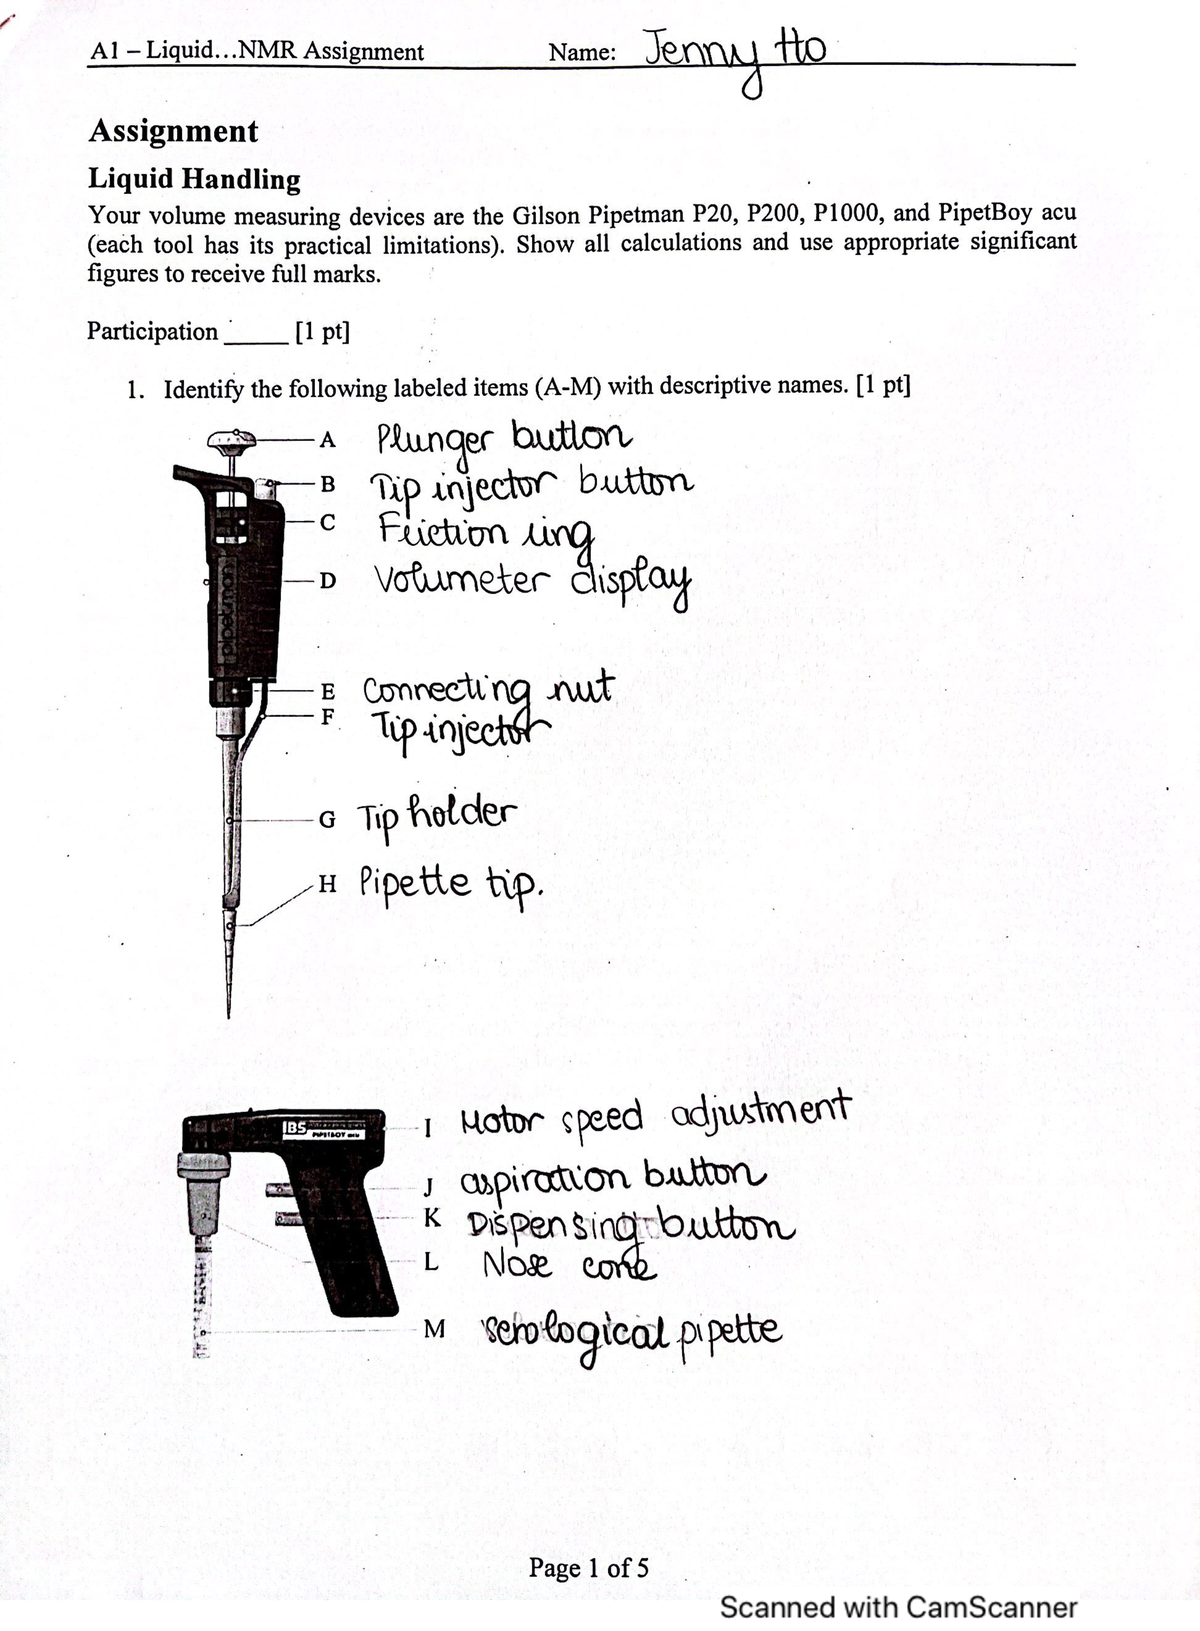 A1 – Liquid...NMR Assignment Name: Jenny Ho
Assignment
Liquid Handling
Your volume measuring devices are the Gilson Pipetman P20, P200, P1000, and PipetBoy acu
(each tool has its practical limitations). Show all calculations and use appropriate significant
figures to receive full marks.
Participation _____ [1 pt]
1. Identify the following labeled items (A-M) with descriptive names. [1 pt]
A Plunger button
B Tip injector button
C Friction ring
D Volumeter display
pipetman
E Connecting nut
F Tip injector
G Tip holder
H Pipette tip.
IBS
PIPETBOY acu
I Motor speed adjustment
J aspiration button
K Dispensing button
L Nose cone
M serological pipette
Page 1 of 5
Scanned with CamScanner